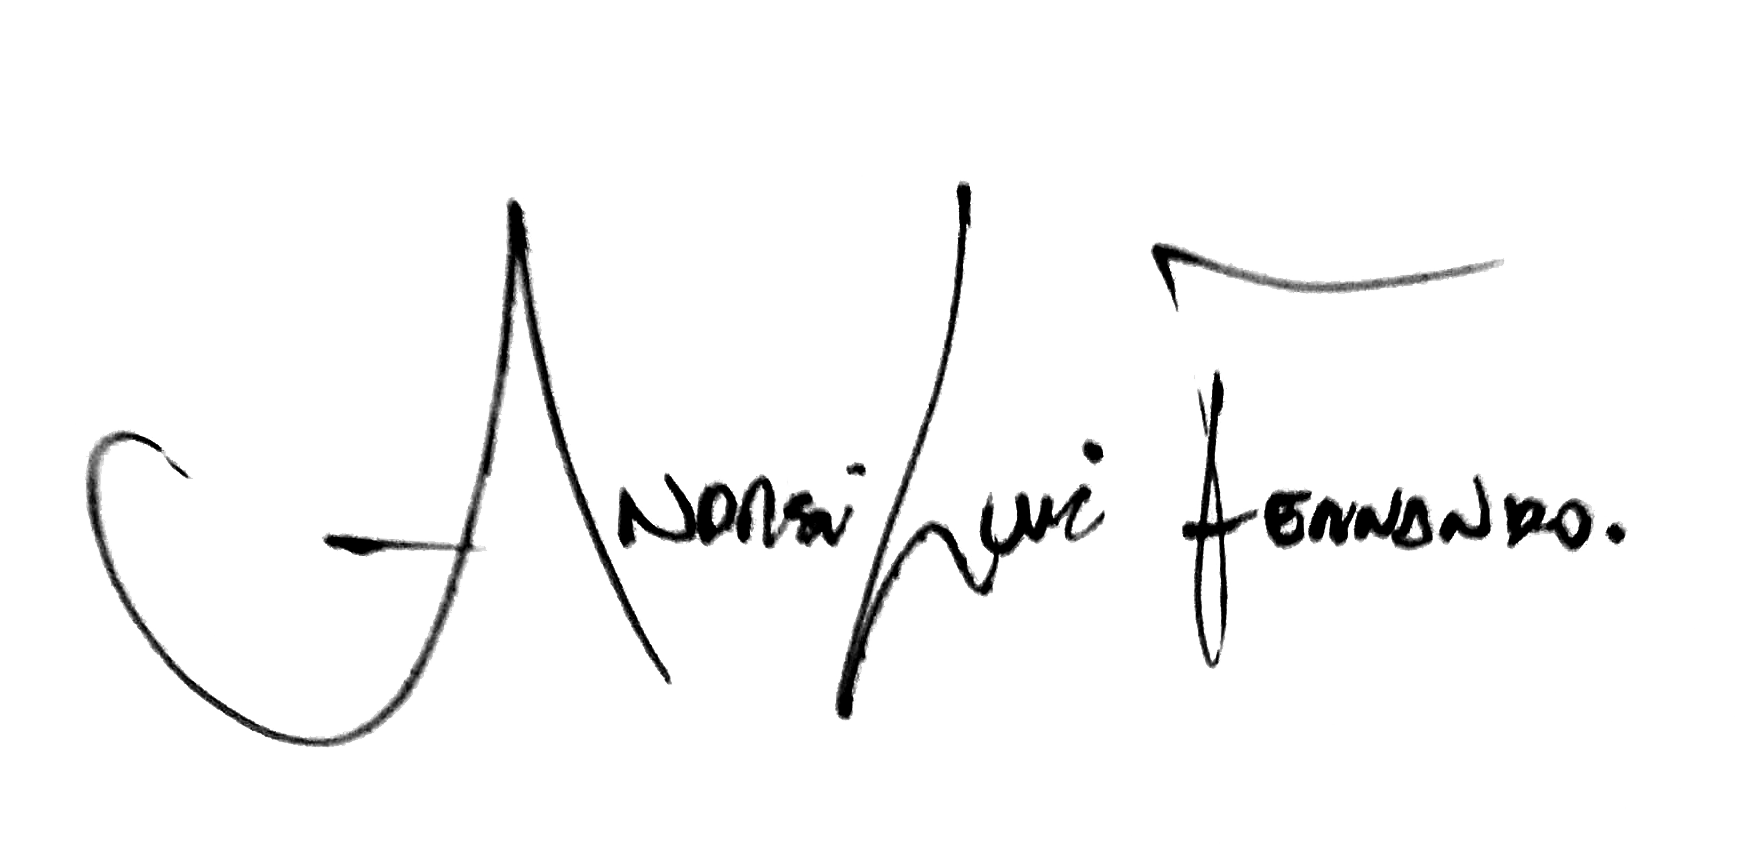 Andrei Lui Fernando.